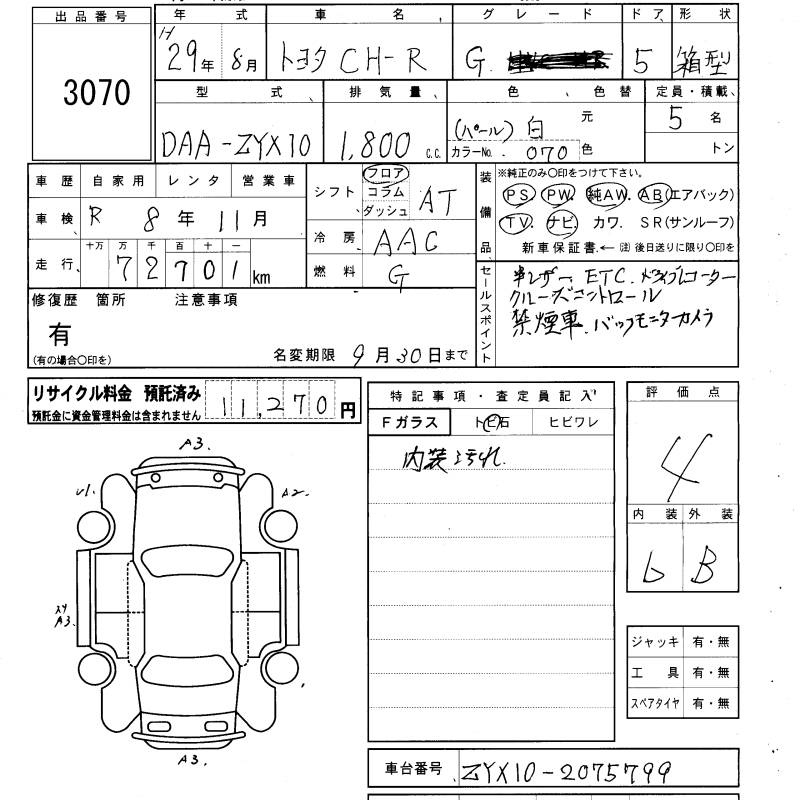 出品番号
3070
年 式 車 名 グレード ドア 形 状
H29年 8月 トヨタ CH-R G 5 箱型
型 式 排気量 色 色替 定員・積載
DAA-ZYX10 1,800 c.c. (パール) 白 元 5 名
カラーNo. 070 色 トン
車歴 自家用 レンタ 営業車
車検 R 8年 11月
走行 十万 万 千 百 十 一
72701 km
シフト フロア コラム ダッシュ AT
冷房 AAC
燃料 G
装備品 ※純正のみ○印をつけて下さい。
PS PW 純AW AB(エアバック)
TV ナビ カワ SR(サンルーフ)
新車保証書←(注)後日送りに限り○印を
修復歴 箇所 注意事項
有
(有の場合○印を)
名変期限 9月30日まで
セールスポイント
半レザー ETC. ドライブレコーダー
クルーズコントロール
禁煙車. バックモニターカメラ
リサイクル料金 預託済み
預託金に資金管理料金は含まれません
11,270円
特記事項・査定員記入
Fガラス トビ石 ヒビワレ
内装汚れ
評価点
4
内装 外装
b B
A3.
U1.
A2
スリ
A3.
A3.
ジャッキ 有・無
工具 有・無
スペアタイヤ 有・無
車台番号 ZYX10-2075799